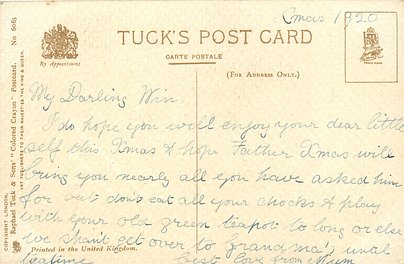 Xmas 1920
TUCK'S POST CARD
By Appointment
CARTE POSTALE
(FOR ADDRESS ONLY.)
My Darling Win
I do hope you will enjoy your dear little
self this Xmas & hope Father Xmas will
bring you nearly all you have asked him
for but don't eat all your chocks & play
with your old green teapot to long or else
we shan't get over to grandma's until
teatime Best Love from Mum
Printed in the United Kingdom.
COPYRIGHT LONDON.
Raphael Tuck & Sons' "Colored Crayon" Postcard. No 6063
ART PUBLISHERS TO THEIR MAJESTIES THE KING & QUEEN.